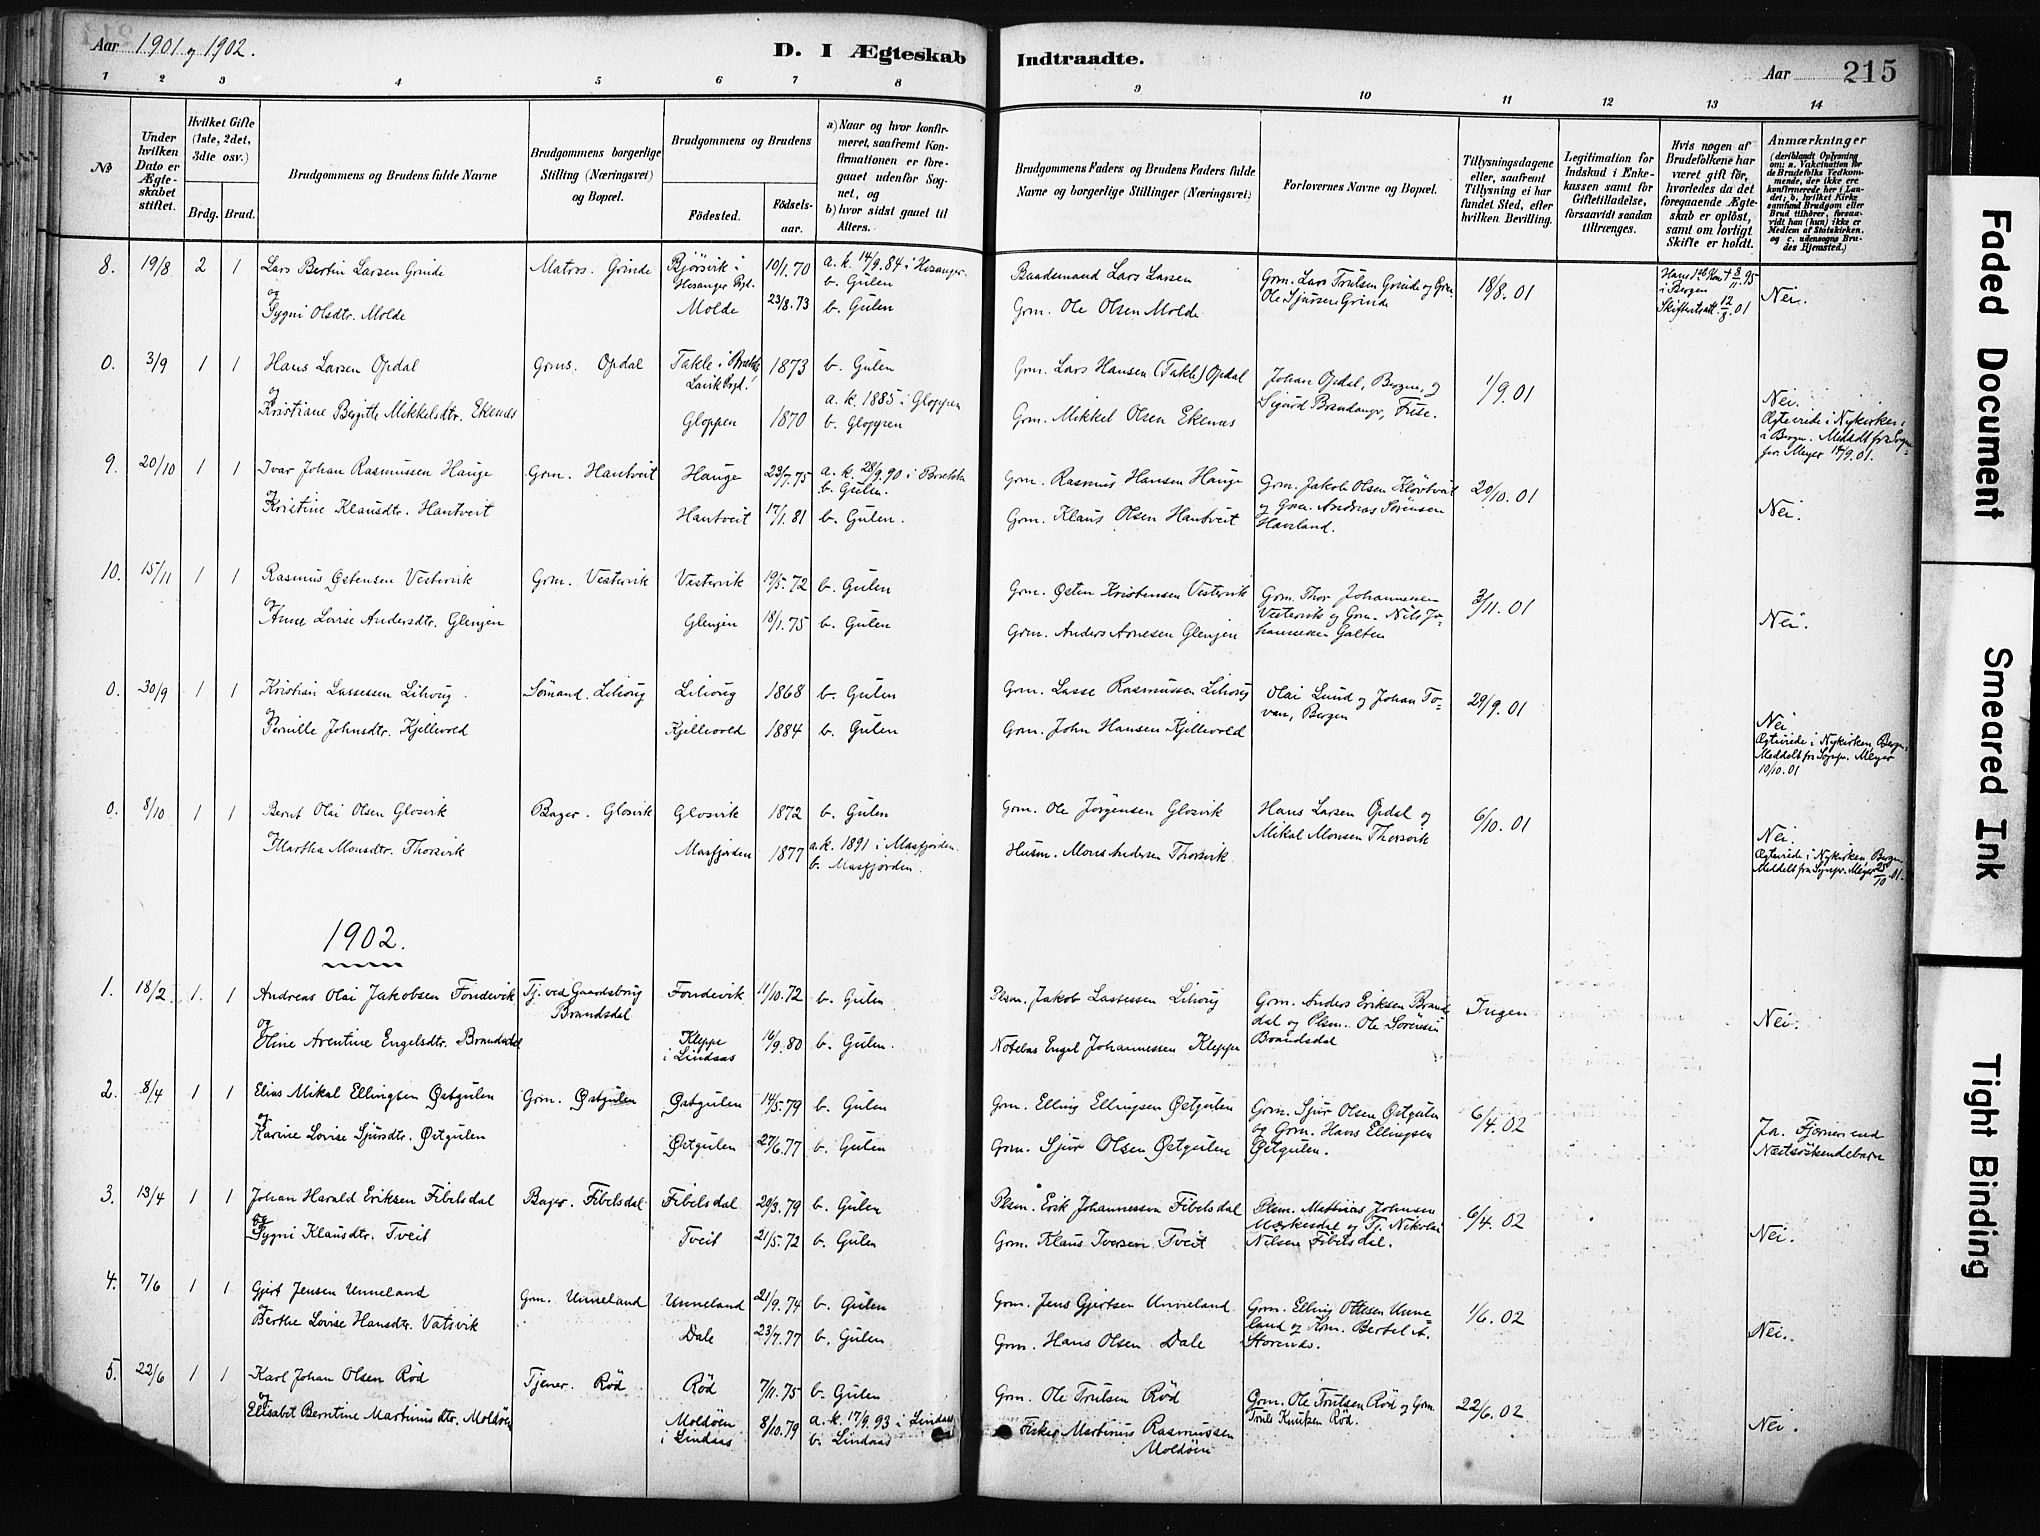 Aar 1901 og 1902.
D. I Ægteskab Indtraadte.
Aar 215
1 2 3 4 5 6 7 8 9 10 11 12 13 14
No
Under hvilken Dato er Ægteskabet stiftet.
Hvilket Gifte (1ste, 2det, 3die osv.)
Brdg. Brud.
Brudgommens og Brudens fulde Navne
Brudgommens borgerlige Stilling (Næringsvei) og Bopæl.
Brudgommens og Brudens
Födested. Födselsaar.
a) Naar og hvor konfirmeret, saafremt Konfirmationen er foregaaet udenfor Sognet, og
b) hvor sidst gaaet til Alters.
Brudgommens Faders og Brudens Faders fulde Navne og borgerlige Stillinger (Næringsvei.)
Forlovernes Navne og Bopæl.
Tillysningsdagene eller, saafremt Tillysning ei har fundet Sted, efter hvilken Bevilling.
Legitimation for Indskud i Enkekassen samt for Giftetilladelse, forsaavidt saadan tiltrænges.
Hvis nogen af Brudefolkene har været gift før, hvorledes da det foregaaende Ægteskab er opløst, samt om lovligt Skifte er holdt.
Anmærkninger
(deriblandt Oplysning om: a. Vakcination for de Brudefolks Vedkommende, der ikke ere konfirmerede her i Landet; b. hvilket Kirkesamfund Brudgom eller Brud tilhører, forsaavidt han (hun) ikke er Medlem af Statskirken, og c. udensogns Brudes Hjemsted.)
8. 19/8 2 1 Lars Bertin Larsen Grinde Matros. Grinde Bjørsvik i Hosanger Pgd. 10/1. 70 a. k. 14/9. 84 i Hosanger. b. Gulen Baadsmand Lars Larsen Grm. Lars Trulsen Grinde og Grm. Ole Sjursen Grinde 18/8. 01 i Bergen Nei.
og
Sygni Olsdtr. Molde Molde 23/8. 73 b. Gulen Grm. Ole Olsen Molde
0. 3/9 1 1 Hans Larsen Opdal Grms. Opdal Takle i 1873 b. Gulen Grm. Lars Hansen (Takle) Opdal Johan Opdal, Bergen, og 1/9. 01 Nei.
og
Kristiane Bergitte Mikkelsdtr. Ekenæs Gloppen 1870 a. k. 1885 i Gloppen b. Gloppen Grm. Mikkel Olsen Ekenæs Ægteviede i Nykirken i Bergen. Meddelt fra Sognepr. Meyer 14/9. 01.
9. 20/10 1 1 Ivar Johan Rasmussen Hauge Grm. Hantveit Hauge 23/7. 75 a. k. 28/9. 90 i Brekke b. Gulen. Grm. Rasmus Hansen Hauge Grm. Jakob Olsen Kløvtveit og Grm. Andreas Sørensen Haveland. 20/10. 01 Nei.
og
Kristine Klausdtr. Hantveit Hantveit 17/1. 81 b. Gulen. Grm. Klaus Olsen Hantveit
10. 15/11 1 1 Rasmus Østensen Vestervik Grm. Vestervik Vestervik 19/5. 72 b. Gulen Grm. Østen Kristensen Vestervik Grm. Thor Johannesen Vestervik og Grm. Nils Johannesen Galten 3/11. 01 Nei.
og
Anne Lovise Andersdtr. Glenjen Glenjen 18/1. 75 b. Gulen Grm. Anders Arnesen Glenjen
0. 30/9 1 1 Kristian Lassesen Lihoug. Sømand. Lihoug Lihoug 1868 b. Gulen Grm. Lasse Rasmussen Lihoug Olai Lund og Johan Tovan, Bergen 29/9. 01 Nei
og
Pernille Johnsdtr. Kjellevold Kjellevold 1884 b. Gulen Grm. John Hansen Kjellevold Ægteviede i Nykirken, Bergen. Meddelt fra Sognepr. Meyer 10/10. 01
0. 8/10 1 1 Bernt Olai Olsen Glosvik Bager. Glosvik Glosvik 1872 b. Gulen Grm. Ole Jørgensen Glosvik Hans Larsen Opdal og Mikal Monsen Thorsvik 6/10. 01 Nei.
og
Martha Monsdtr. Thorsvik Masfjorden 1877 a. k. 1891 i Masfjorden. b. Masfjorden. Husm. Mons Andersen Thorsvik Ægteviede i Nykirken, Bergen. Meddelt fra Sognepr. Meyer 25/10. 01.
1902.
1. 18/2 1. 1 Andreas Olai Jakobsen Fondevik Tj. ved Gaardsbrug Brandsdal Fondevik 11/10. 72 b. Gulen Plsm. Jakob Lassesen Lihoug Grm. Anders Eriksen Brandsdal og Plsm. Ole Sørensen Brandsdal Ingen Nei.
og
Oline Aventine Engelsdtr. Brandsdal Kleppe i Lindaas 16/9. 80 b. Gulen. Notebas Engel Johannessen Kleppe
2. 8/4 1 1 Elias Mikal Ellingsen Østgulen Grm. Østgulen Østgulen 14/5. 79 b. Gulen Grm. Elling Ellingsen Østgulen Grm. Sjur Olsen Østgulen og Grm. Hans Ellingsen Østgulen. 6/4. 02 Ja. Fjernere end Næstsøskendebarn
og
Karine Lovise Sjursdtr. Østgulen Østgulen 27/6. 77 b. Gulen Grm. Sjur Olsen Østgulen
3. 13/4 1 1 Johan Harald Eriksen Fibelsdal Bager. Fibelsdal Fibelsdal 20/3. 79 b. Gulen Plsm. Erik Johannessen Fibelsdal Plsm. Mathias Johnsen Mærkesdal og Tj. Nikolai Nilsen Fibelsdal. 6/4. 02 Nei.
og
Sygni Klausdtr. Tveit Tveit 21/5. 72 b. Gulen Grm. Klaus Iversen Tveit
4. 7/6 1 1 Gjert Jensen Unneland Grm. Unneland Unneland 21/9. 74 b. Gulen Grm. Jens Gjertsen Unneland Grm. Elling Ottesen Unneland og Bertel A. Storenes. 1/6. 02 Nei.
og
Berthe Lovise Hansdtr. Vatsvik Dale 23/7. 77 b. Gulen Grm. Hans Olsen Dale
5. 22/6 1 1 Karl Johan Olsen Rød Tjener. Rød Rød 7/11. 75 b. Gulen Grm. Ole Trulsen Rød Grm. Ole Trulsen Rød og Grm. Truls Knutsen Rød. 22/6. 02 Nei.
og
Elisabet Berntine Martinusdtr. Moldøen Moldøen i Lindaas 8/10. 79 a. k. 17/9. 93 i Lindaas b. Lindaas Fisker Martinus Rasmussen Moldøen
Faded Document
Smeared Ink
Tight Binding